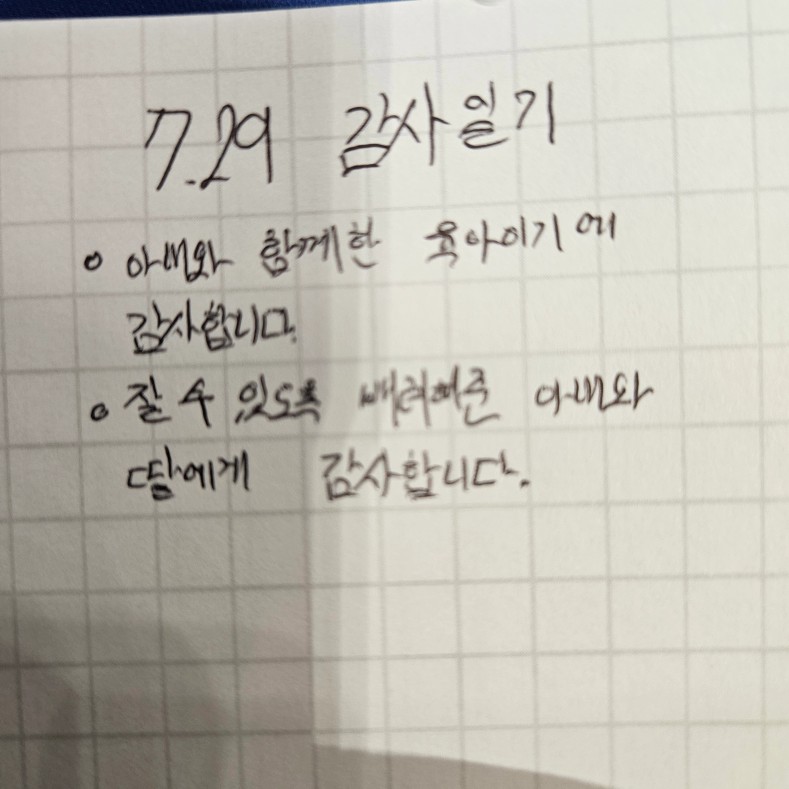 7.29 감사일기
o 아내와 함께한 육아이기에
감사합니다.
o 잘 수 있도록 배려해준 아내와
딸에게 감사합니다.